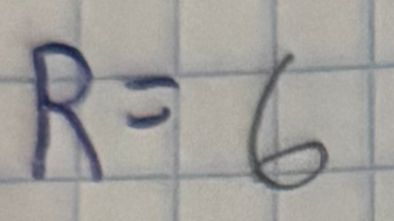 R = 6